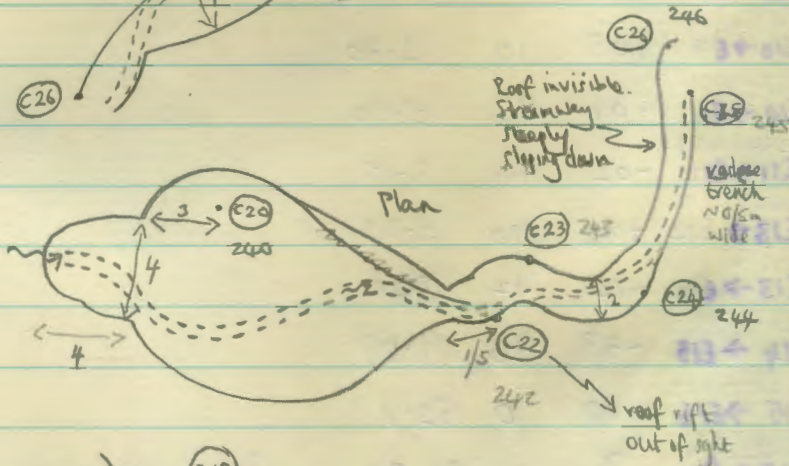 C26
246
C26
Roof invisible.
Streamway
steeply
sloping down
C25
245
vadose
trench
~0/5m
wide
Plan
3
C20
240
C23
243
4
2
C24
244
4
1/5
C22
242
roof rift
out of sight